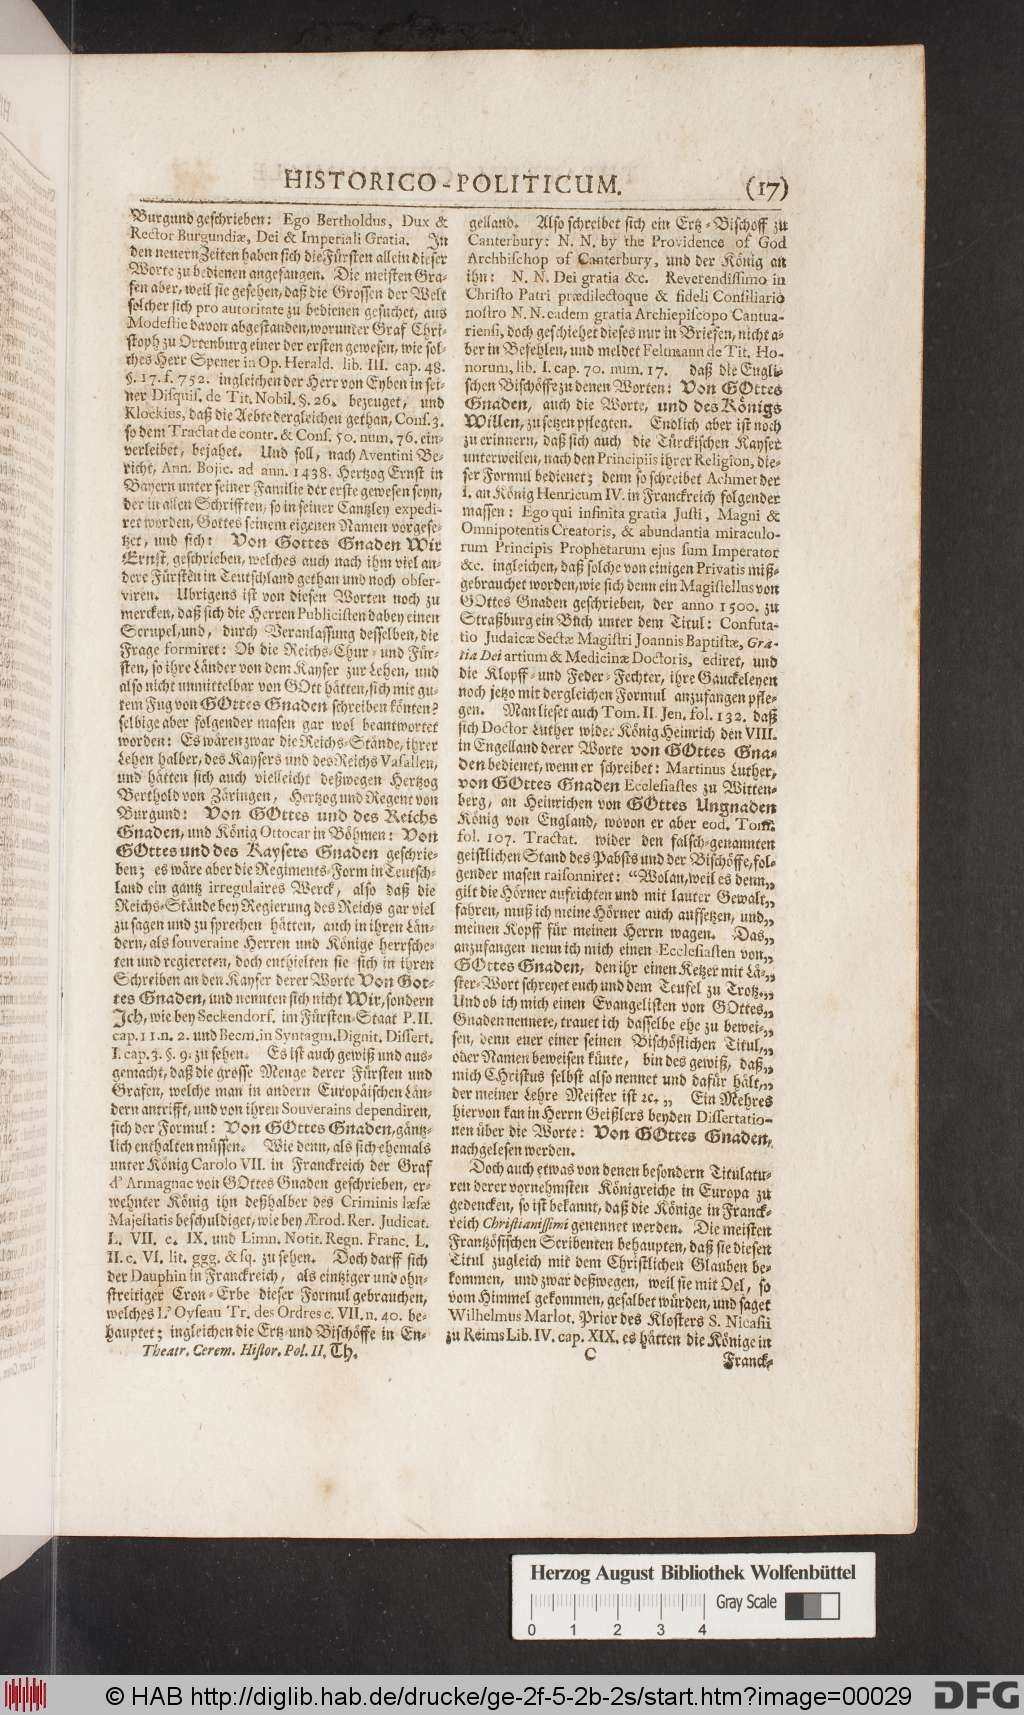 HISTORICO-POLITICUM. (17)
Burgund geschrieben: Ego Bertholdus, Dux &
Rector Burgundiæ, Dei & Imperiali Gratia. In
den neuern Zeiten haben sich die Fürsten allein dieser
Worte zu bedienen angefangen. Die meisten Gra-
fen aber, weil sie gesehen, daß die Grossen der Welt
solcher sich pro autoritate zu bedienen gesuchet, aus
Modestie davon abgestanden, worunter Graf Chri-
stoph zu Ortenburg einer der ersten gewesen, wie sol-
ches Herr Spener in Op. Herald. lib. III. cap. 48.
§. 17. f. 752. ingleichen der Herr von Eyben in sei-
ner Disquis. de Tit. Nobil. §. 26. bezeuget, und
Klockius, daß die Aebte dergleichen gethan, Cons. 3.
so dem Tractat de contr. & Cons. 50. num. 76. ein-
verleibet, bejahet. Und soll, nach Aventini Be-
richt, Ann. Bojic. ad ann. 1438. Hertzog Ernst in
Bayern unter seiner Familie der erste gewesen seyn,
der in allen Schrifften, so in seiner Cantzley expedi-
ret worden, Gottes seinem eigenen Namen vorgese-
tzet, und sich: Von Gottes Gnaden Wir
Ernst, geschrieben, welches auch nach ihm viel an-
dere Fürsten in Teutschland gethan und noch obser-
viren. Ubrigens ist von diesen Worten noch zu
mercken, daß sich die Herren Publicisten dabey einen
Scrupel, und, durch Veranlassung desselben, die
Frage formiret: Ob die Reichs-Chur- und Für-
sten, so ihre Länder von dem Kayser zur Lehen, und
also nicht unmittelbar von GOtt hätten, sich mit gu-
tem Fug von GOttes Gnaden schreiben könten?
selbige aber folgender masen gar wol beantwortet
worden: Es wären zwar die Reichs-Stände, ihrer
Lehen halber, des Kaysers und des Reichs Vasallen,
und hätten sich auch vielleicht deßwegen Hertzog
Berthold von Zäringen, Hertzog und Regent von
Burgund: Von GOttes und des Reichs
Gnaden, und König Ottocar in Böhmen: Von
GOttes und des Kaysers Gnaden geschrie-
ben; es wäre aber die Regiments-Form in Teutsch-
land ein gantz irregulaires Werck, also daß die
Reichs-Stände bey Regierung des Reichs gar viel
zu sagen und zu sprechen hätten, auch in ihren Län-
dern, als souveraine Herren und Könige herrsche-
ten und regiereten, doch enthielten sie sich in ihren
Schreiben an den Kayser derer Worte Von Got-
tes Gnaden, und nennten sich nicht Wir, sondern
Ich, wie bey Seckendorf. im Fürsten-Staat P. II.
cap. 11. n. 2. und Becm. in Syntagm. Dignit. Dissert.
I. cap. 3. §. 9. zu sehen. Es ist auch gewiß und aus-
gemacht, daß die grosse Menge derer Fürsten und
Grafen, welche man in andern Europäischen Län-
dern antrifft, und von ihren Souverains dependiren,
sich der Formul: Von GOttes Gnaden, gäntz-
lich enthalten müssen. Wie denn, als sich ehemals
unter König Carolo VII. in Franckreich der Graf
d' Armagnac von GOttes Gnaden geschrieben, er-
wehnter König ihn deßhalber des Criminis læsæ
Majestatis beschuldiget, wie bey Ærod. Rer. Judicat.
L. VII. c. IX. und Limn. Notit. Regn. Franc. L.
II. c. VI. lit. ggg. & sq. zu sehen. Doch darff sich
der Dauphin in Franckreich, als eintziger und ohn-
streitiger Cron-Erbe dieser Formul gebrauchen,
welches L' Oyseau Tr. des Ordres c. VII. n. 40. be-
hauptet; ingleichen die Ertz- und Bischöffe in En-
Theatr. Cerem. Histor. Pol. II. Th.
gelland. Also schreibet sich ein Ertz-Bischoff zu
Canterbury: N. N. by the Providence of God
Archbischop of Canterbury, und der König an
ihn: N. N. Dei gratia &c. Reverendissimo in
Christo Patri prædilectoque & fideli Consiliario
nostro N. N. eadem gratia Archiepiscopo Cantua-
riensi, doch geschiehet dieses nur in Briefen, nicht a-
ber in Befehlen, und meldet Feltmann de Tit. Ho-
norum, lib. I. cap. 70. num. 17. daß die Engli-
schen Bischöffe zu denen Worten: Von GOttes
Gnaden, auch die Worte, und des Königs
Willen, zu setzen pflegten. Endlich aber ist noch
zu erinnern, daß sich auch die Türckischen Kayser
unterweilen, nach den Principiis ihrer Religion, die-
ser Formul bedienet; denn so schreibet Achmet der
I. an König Henricum IV. in Franckreich folgender
massen: Ego qui infinita gratia Justi, Magni &
Omnipotentis Creatoris, & abundantia miraculo-
rum Principis Prophetarum ejus sum Imperator
&c. ingleichen, daß solche von einigen Privatis miß-
gebrauchet worden, wie sich denn ein Magistellus von
GOttes Gnaden geschrieben, der anno 1500. zu
Straßburg ein Buch unter dem Titul: Confuta-
tio Judaicæ Sectæ Magistri Joannis Baptistæ, Gra-
tia Dei artium & Medicinæ Doctoris, ediret, und
die Klopff- und Feder-Fechter, ihre Gauckeleyen
noch jetzo mit dergleichen Formul anzufangen pfle-
gen. Man lieset auch Tom. II. Jen. fol. 132. daß
sich Doctor Luther wider König Heinrich den VIII.
in Engelland derer Worte von GOttes Gna-
den bedienet, wenn er schreibet: Martinus Luther,
von GOttes Gnaden Ecclesiastes zu Witten-
berg, an Heinrichen von GOttes Ungnaden
König von England, wovon er aber eod. Tom.
fol. 107. Tractat. wider den falsch-genannten
geistlichen Stand des Pabsts und der Bischöffe, fol-
gender masen raisonniret: “Wolan, weil es denn„
gilt die Hörner aufrichten und mit lauter Gewalt„
fahren, muß ich meine Hörner auch aufsetzen, und„
meinen Kopff für meinen Herrn wagen. Das„
anzufangen nenn ich mich einen Ecclesiasten von„
GOttes Gnaden, den ihr einen Ketzer mit Lä-„
ster-Wort schreyet euch und dem Teufel zu Trotz.„
Und ob ich mich einen Evangelisten von GOttes„
Gnaden nennete, trauet ich dasselbe ehe zu bewei-„
sen, denn euer einer seinen Bischöflichen Titul,„
oder Namen beweisen künte, bin des gewiß, daß„
mich CHristus selbst also nennet und dafür hält,„
der meiner Lehre Meister ist ꝛc.„ Ein Mehres
hiervon kan in Herrn Geißlers beyden Dissertatio-
nen über die Worte: Von GOttes Gnaden,
nachgelesen werden.
Doch auch etwas von denen besondern Titulatu-
ren derer vornehmsten Königreiche in Europa zu
gedencken, so ist bekannt, daß die Könige in Franck-
reich Christianissimi genennet werden. Die meisten
Frantzösischen Scribenten behaupten, daß sie diesen
Titul zugleich mit dem Christlichen Glauben be-
kommen, und zwar deßwegen, weil sie mit Oel, so
vom Himmel gekommen, gesalbet würden, und saget
Wilhelmus Marlot, Prior des Klosters S. Nicasii
zu Reims Lib. IV. cap. XIX. es hätten die Könige in
C
Franck-
Herzog August Bibliothek Wolfenbüttel
Gray Scale
0 1 2 3 4
© HAB http://diglib.hab.de/drucke/ge-2f-5-2b-2s/start.htm?image=00029
DFG